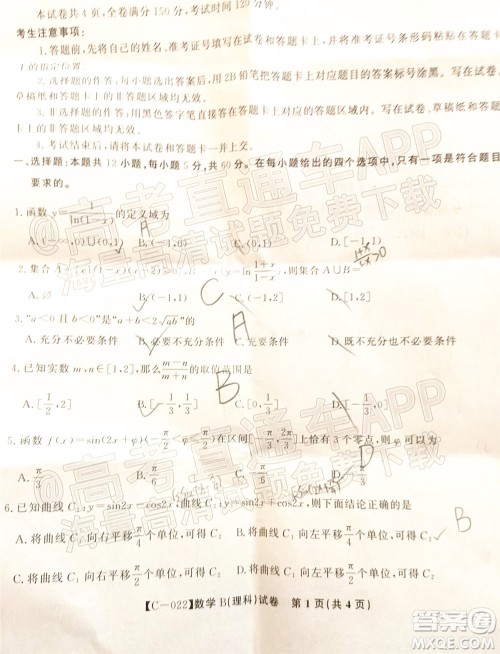 本试卷共4页,全卷满分150分,考试时间120分钟。
考生注意事项:
1.答题前,先将自己的姓名、准考证号填写在试卷和答题卡上,并将准考证号条形码粘贴在答题卡上
的指定位置。
2.选择题的作答:每小题选出答案后,用2B铅笔把答题卡上对应题目的答案标号涂黑。写在试卷、
草稿纸和答题卡上的非答题区域均无效。
答题区域均无效。
4.考试结束后,请将本试卷和答题卡一并上交。
一、选择题:本题共12小题,每小题5分,共60分。在每小题给出的四个选项中,只有一项是符合题目
要求的。
1.函数y=1/ln(1-x)的定义域为 A
A.(-∞,0)∪(0,1) B.(-1,1) C.(0,1) D.[-1,0)
2.集合 y=ln(1+x)/(1-x)},则A∪B= C
A.∅ B.(-1,1) D.[-1,1)
3."a<0且b<0"是"a+b<2√ab"的 A
A.充分不必要条件 B.必要不充分条件 C.充要条件 D.既不充分也不必要条件
4.已知实数m,n∈[1,2],那么(m-n)/(m+n)的取值范围是 B
A.[1/2,2] B.[-1/3,1/3]
5.函数f(x)=sin(2x+φ)(-π/2<φ<π/2)在区间[-π/3,π/3]上恰有3个零点,则φ= D
A.π/3 B.-π/3 C.π/6 D.-π/6
6.已知曲线C₁:y=sin2x-cos2x,曲线C₂:y=sin2x+cos2x,则下面结论正确的是 B
A.将曲线C₁向右平移π/4个单位,可得C₂ B.将曲线C₁向左平移π/4个单位,可得C₂
C.将曲线C₁向右平移π/2个单位,可得C₂ D.将曲线C₁向左平移π/2个单位,可得C₂
【C-022】数学B(理科)试卷 第1页(共4页)
@高考直通车APP
海量高清试题免费下载
@高考直通车APP
海量高清试题免费下载
答案圈